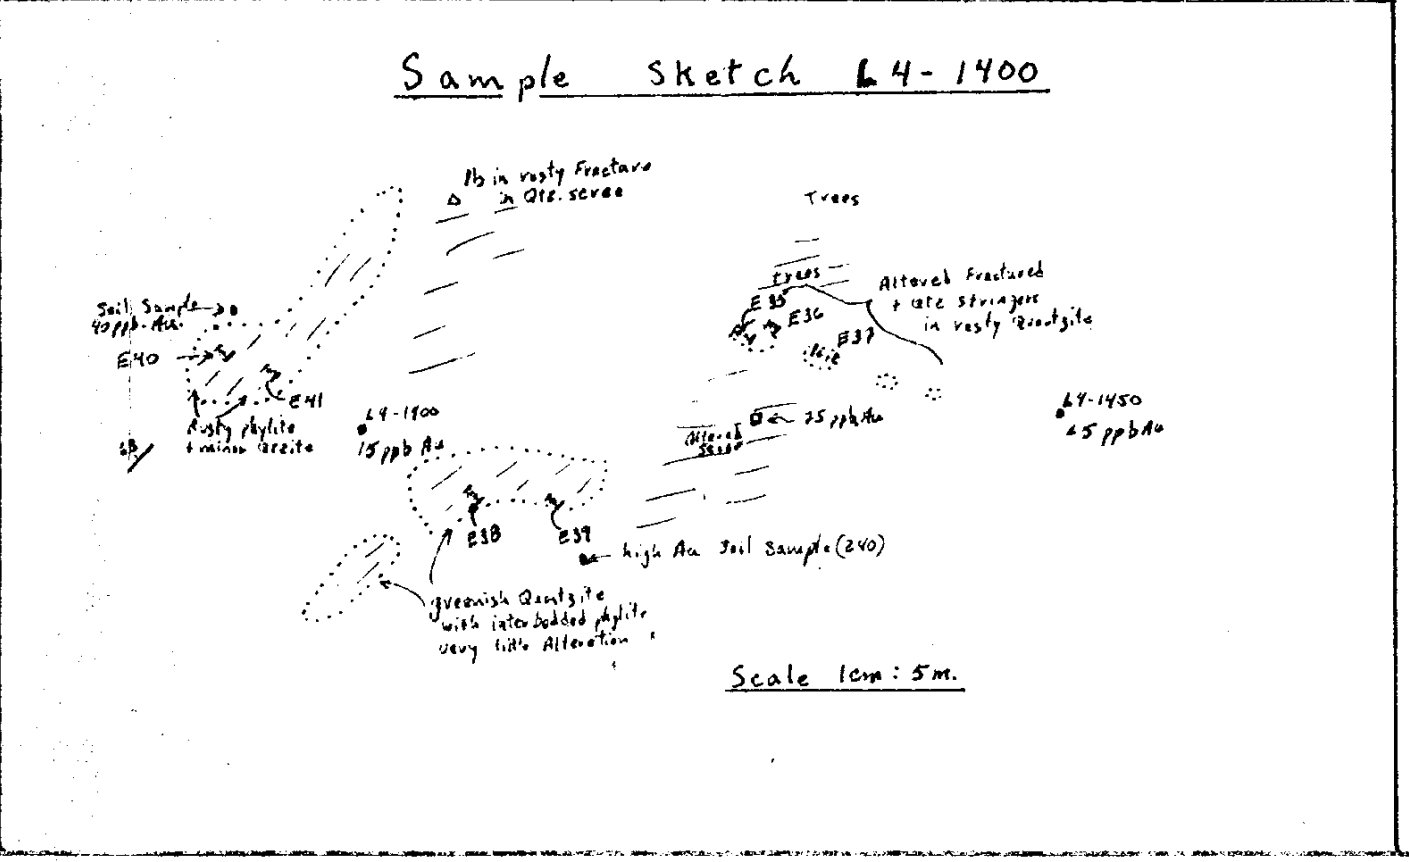 Sample Sketch L4-1400
Pb in rusty Fracture
in Qtz. scree
Trees
trees
Altered Fractured
+ Qtz Stringers
in rusty Quartzite
Soil Sample
40 ppb. Au.
E40
E41
E35
E36
E37
Rusty phylite
+ minor Qtzite
L4-1400
15 ppb Au
Altered
25 ppb Au
L4-1450
<5 ppb Au
E38
E39
high Au Soil Sample (240)
greenish Quartzite
with interbedded phylite
very little Alteration
Scale 1cm : 5 m.